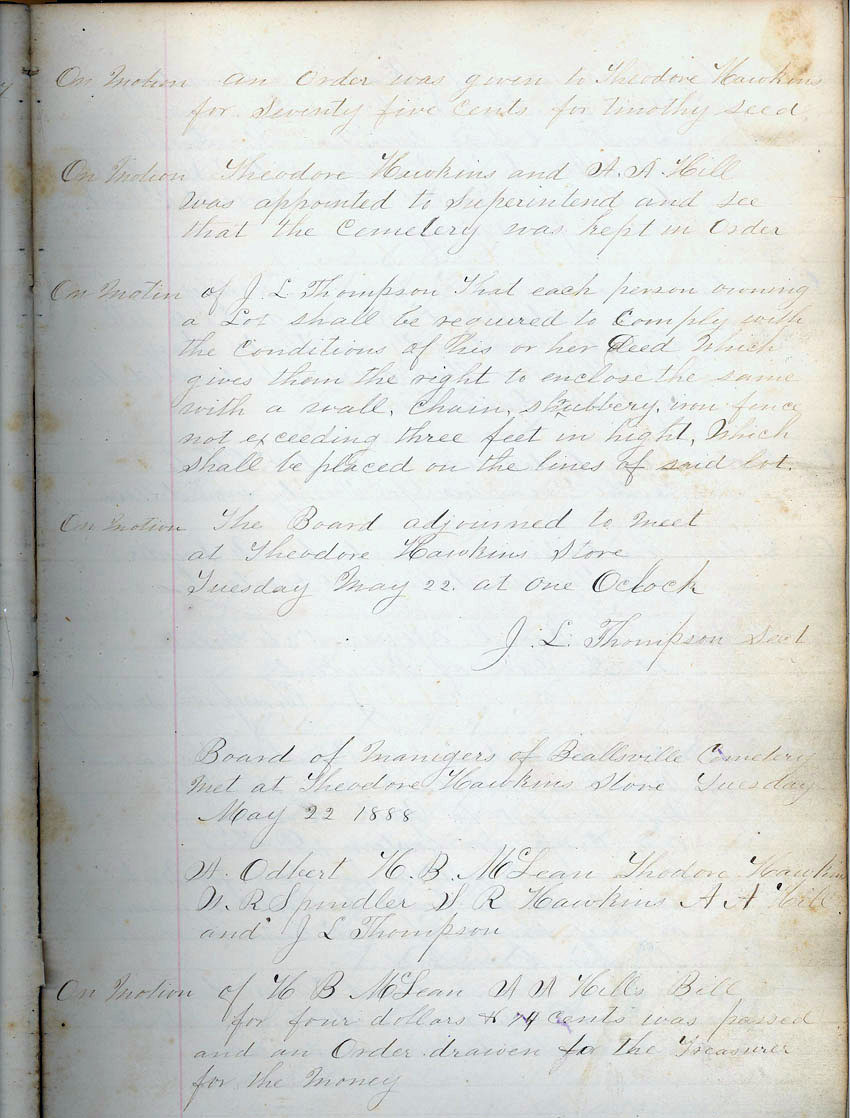 On Motion an Order was given to Theodore Hawkins
for Seventy five cents for timothy seed
On Motion Theodore Hawkins and A. A. Hill
was appointed to Superintend and see
that the Cemetery was kept in Order
On Motin of J. L Thompson That each person owning
a Lot shall be required to Comply with
the conditions of his or her Deed Which
gives them the right to enclose the same
with a wall, chain, shubbery, iron fence
not exceeding three feet in hight, Which
shall be placed on the lines of said lot.
On Motion The Board adjourned to meet
at Theodore Hawkins Store
Tuesday May 22. at one Oclock
J. L. Thompson Sect
Board of Manigers of Beallsville Cemetery
Met at Theodore Hawkins Store Tuesday
May 22 1888
Odbert H. B. McLean Theodore Hawkins
R Spindler R Hawkins A A Hill
and J L Thompson
On Motion of H B McLean A A Hills Bill
for four dollars & 74 cents was passed
and an Order drawen for the Treasurer
for the Money